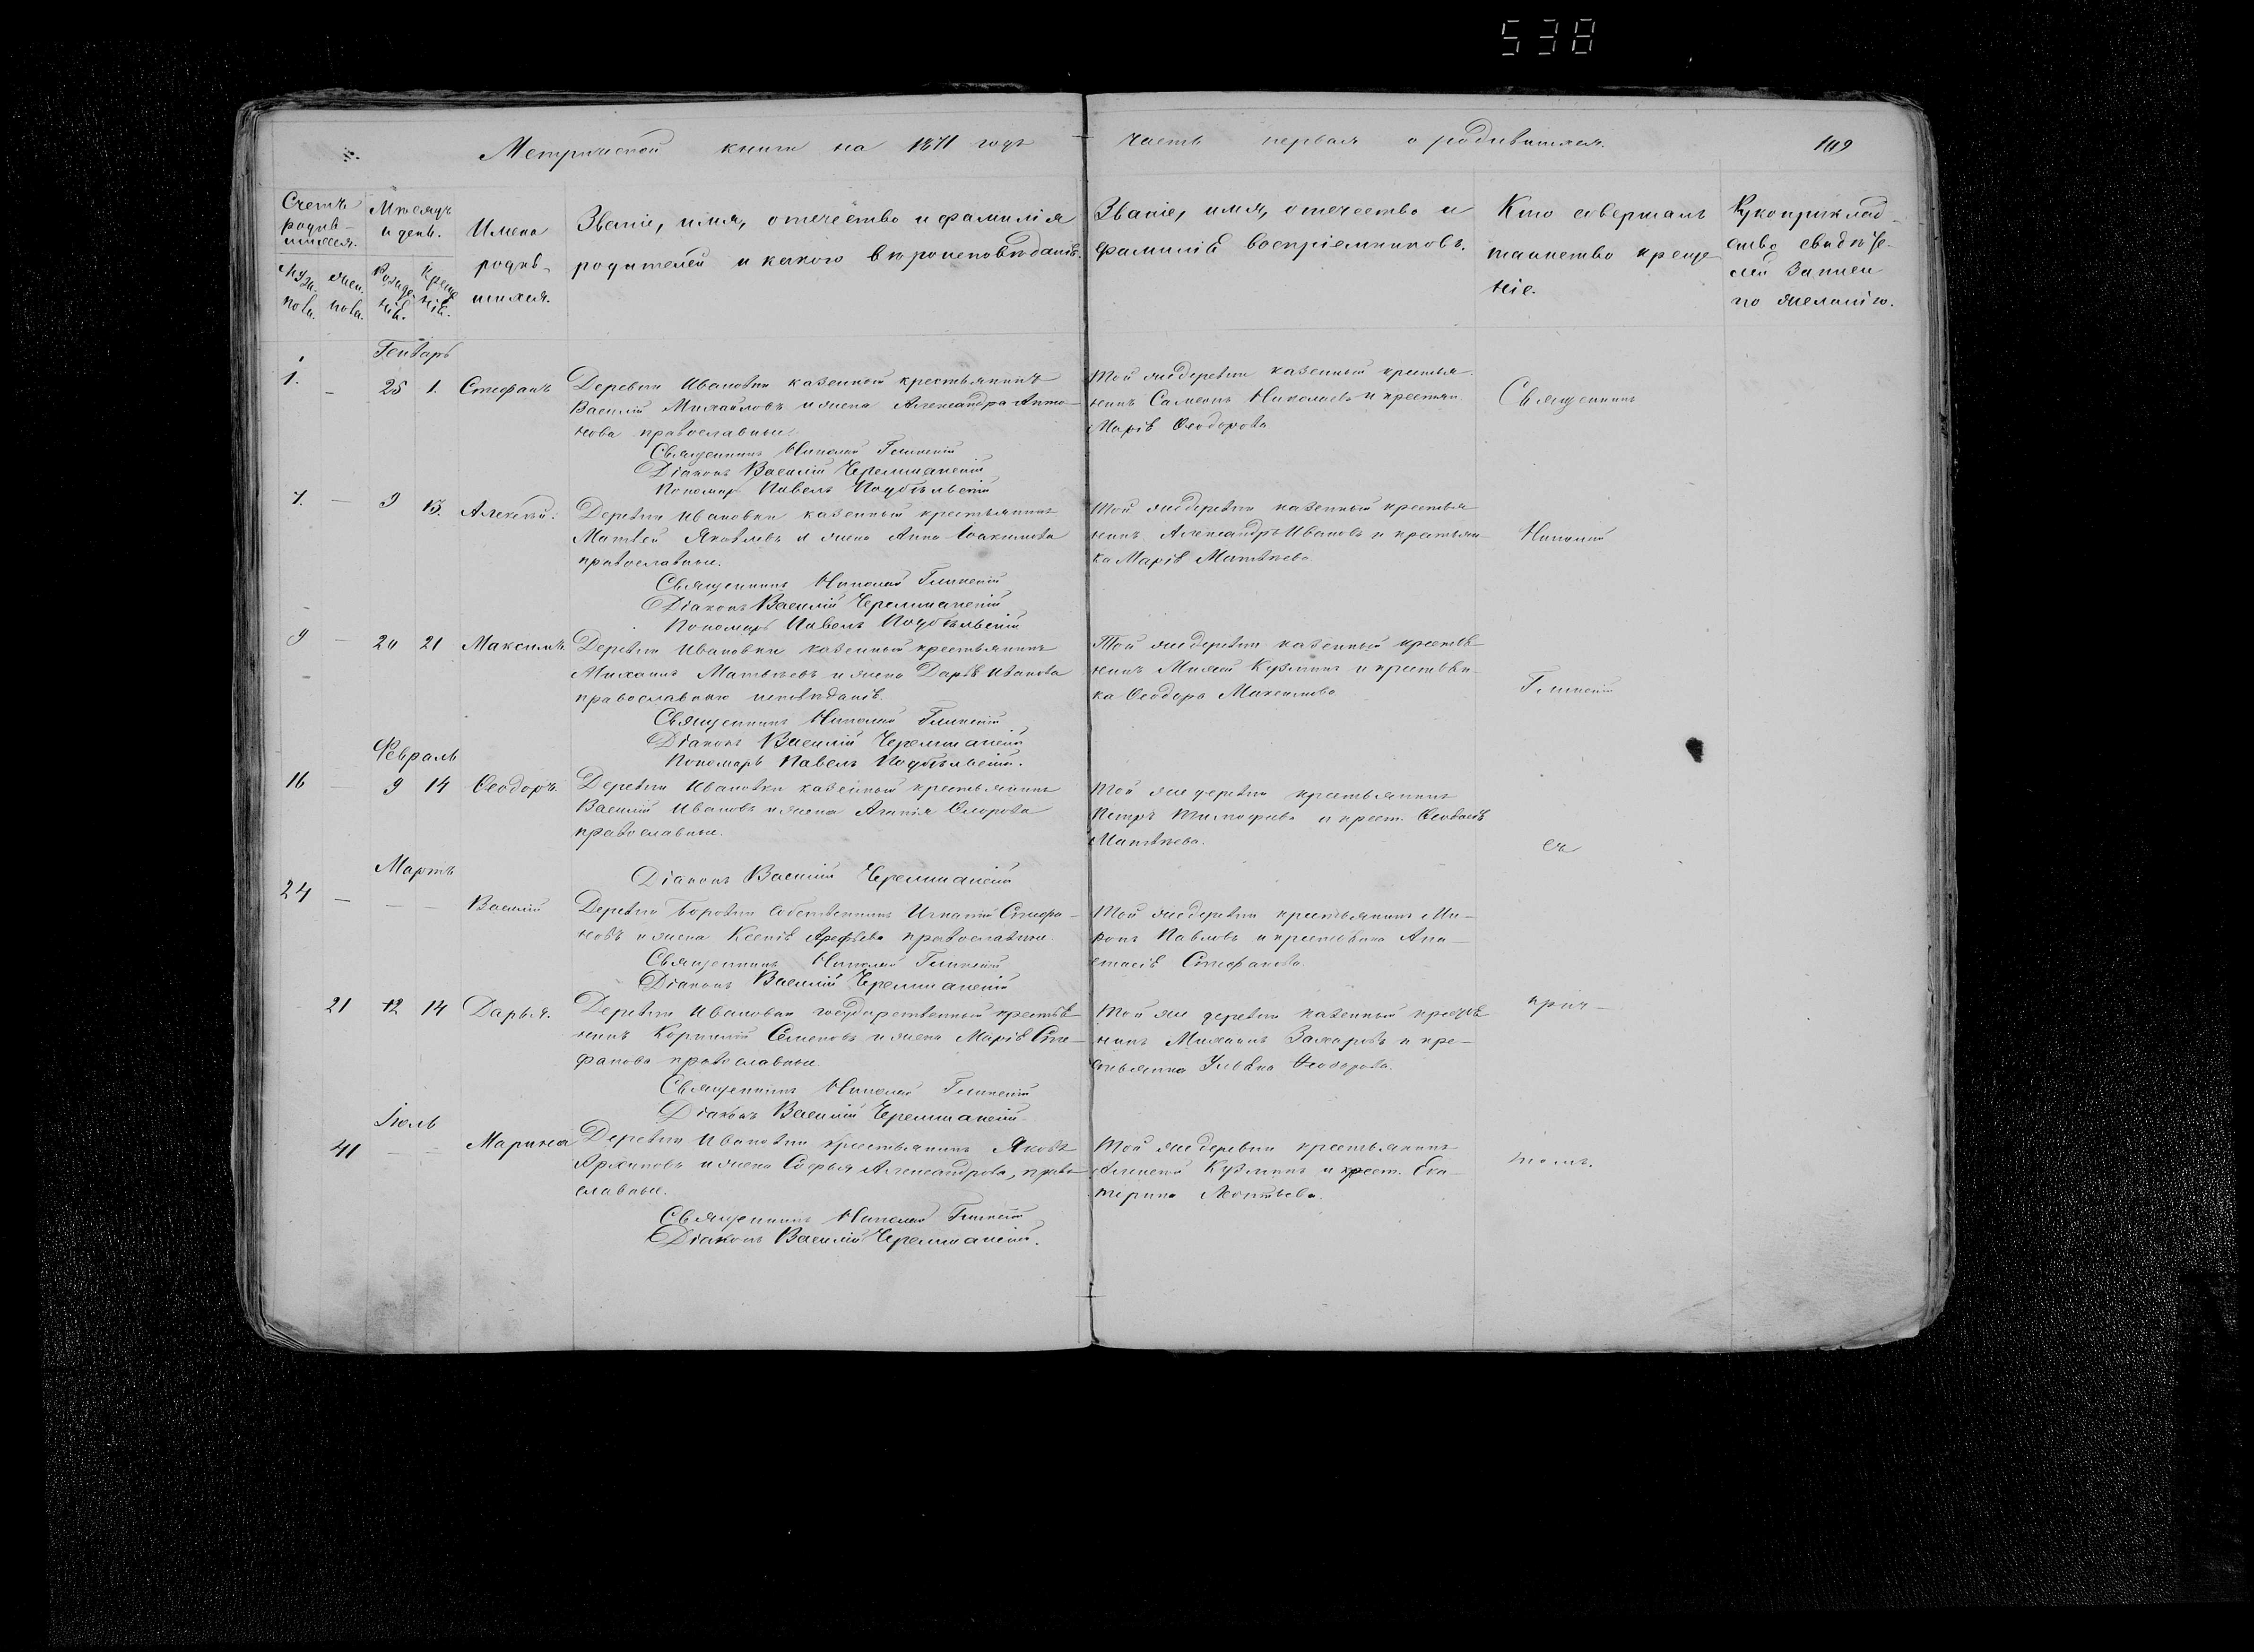 538
Метрической книги на 1871 годъ часть первая о родившихся. 109
Счетъ родив-шихся.
Мѣсяцъ и день.
Имена родив-шихся.
Званіе, имя, отечество и фамилія
родителей и какого вѣроисповѣданія.
Званіе, имя, отечество и
фамилія воспріемниковъ.
Кто совершалъ
таинство креще
нія.
Рукоприклад-
ство свидѣте-
лей записи
по желанію.
Муж. пола. Жен. пола. Рожде-нія. Креще нія.
Генварь
1. – 25 1. Стефанъ Деревни Ивановки казенный крестьянинъ
Василій Михайловъ и жена Александра Анто-
нова православные
Священникъ Николай Глинскій
Діаконъ Василій Черемшанскій
Пономарь Павелъ Подбѣльскій
Той же деревни казенный крестья-
нинъ Николаевъ и крестьян
Марія Ѳеодорова
Священникъ
7. – 9 13. Алексѣй. Деревни Ивановки казенный крестьянинъ
Матвей Яковлевъ и жена Анна Іоакимова
православные.
Священникъ Николай Глинскій
Діаконъ Василій Черемшанскій
Пономарь Павелъ Подбѣльскій
Той же деревни казенный крестья
нинъ Александръ Ивановъ и крестьян-
ка Марія Матвѣева.
Николай
9 – 20 21 Максимъ Деревни Ивановки казенный крестьянинъ
Михаилъ Матвѣевъ и жена Дарія Иванова
православнаго исповѣданія.
Священникъ Николай Глинскій
Діаконъ Василій Черемшанскій
Пономарь Павелъ Подбѣльскій.
Той же деревни казенный крестья-
нинъ Кузминъ и крестьян-
ка Ѳеодора
Глинскій
Февраль
16 – 9 14 Ѳеодоръ. Деревни Ивановки казенный крестьянинъ
Василій Ивановъ и жена Агапія
православные.
Діаконъ Василій Черемшанскій
Той же деревни крестьянинъ
Петръ Тимофѣевъ и крест.
Матвѣева.
съ
Мартъ
24 – – – Василій Деревни Боровки собственникъ Игнатій Стефа-
новъ и жена Ксенія Арефьева православные.
Священникъ Николай Глинскій
Діаконъ Василій Черемшанскій
Той же деревни крестьянинъ Ми-
ронъ Павловъ и крестьянка Ана-
стасія Стефанова.
прич-
21 12 14 Дарья. Деревни Ивановки государственный крестья-
нинъ Корнилій Семеновъ и жена Марія Сте-
фанова православные.
Священникъ Николай Глинскій
Діаконъ Василій Черемшанскій
Той же деревни казенный крестья
нинъ Михаилъ Захаровъ и кре-
стьянка Ульяна Ѳеодорова.
Іюль
41 – – Марина Деревни Ивановки крестьянинъ Яковъ
Архиповъ и жена Софья Александрова, право
славные.
Священникъ Николай Глинскій
Діаконъ Василій Черемшанскій.
Той же деревни крестьянинъ
Алексѣй Кузминъ и крест. Ека-
терина Леонтьева.
томъ.